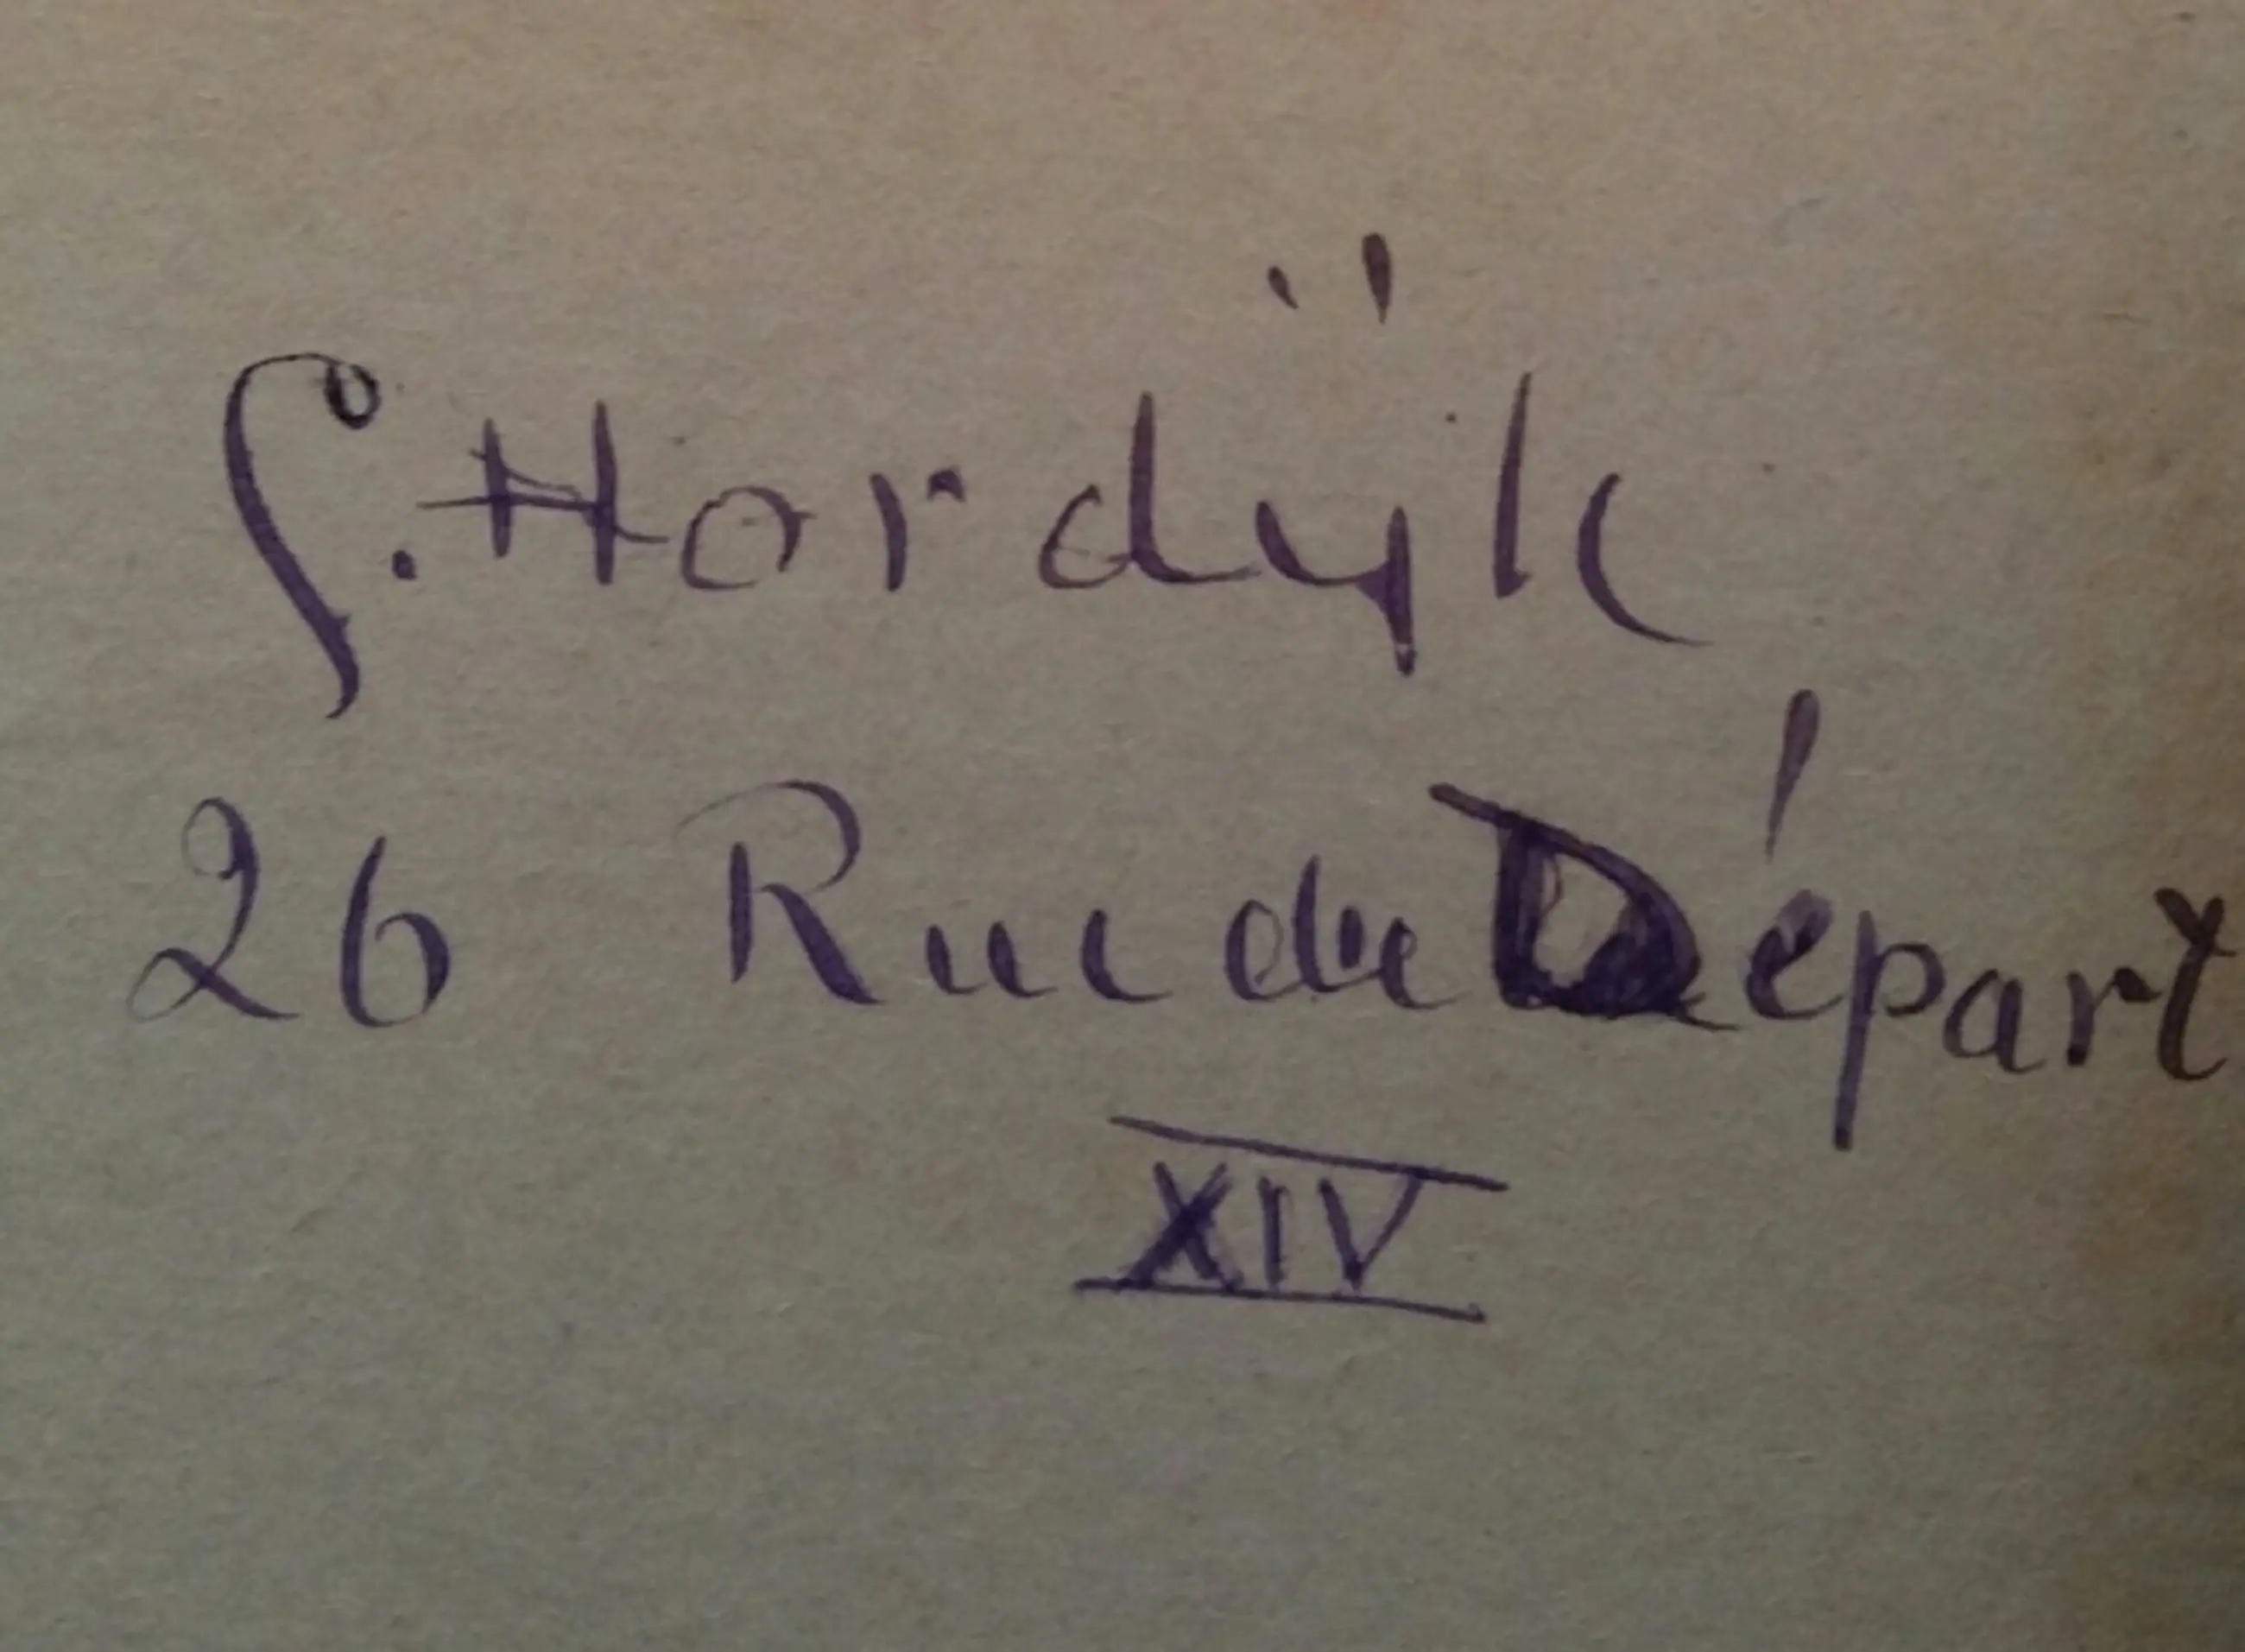 G. Hordÿk
26 Rue du Départ
XIV